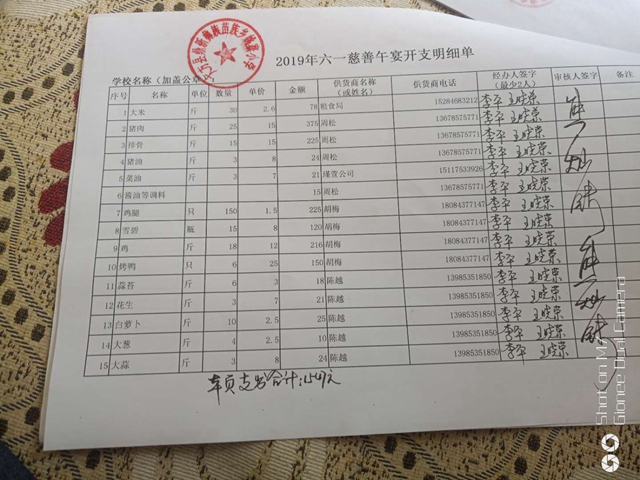 2019年六一慈善午宴开支明细单
学校名称（加盖公章）
序号 名称 单位 数量 单价 金额 供货商名称（或姓名） 供货商电话 经办人签字（最少2人） 审核人签字 备注
1 大米 斤 30 2.6 78 粮食局 15284683212 李平 王晓荣
2 猪肉 斤 25 15 375 周松 13678575771 李平 王晓荣
3 排骨 斤 15 15 225 周松 13678575771 李平 王晓荣
4 猪油 斤 3 8 24 周松 13678575771 李平 王晓荣
5 菜油 斤 3 7 21 瑾萱公司 15117533926 李平 王晓荣
6 酱油等调料 15 周松 13678575771 李平 王晓荣
7 鸡腿 只 150 1.5 225 胡梅 18084377147 李平 王晓荣
8 雪碧 瓶 15 8 120 胡梅 18084377147 李平 王晓荣
9 鸡 斤 18 12 216 胡梅 18084377147 李平 王晓荣
10 烤鸭 只 6 25 150 胡梅 18084377147 李平 王晓荣
11 蒜苔 斤 6 3 18 陈越 13985351850 李平 王晓荣
12 花生 斤 3 7 21 陈越 13985351850 李平 王晓荣
13 白萝卜 斤 10 2.5 25 陈越 13985351850 李平 王晓荣
14 大葱 斤 4 2.5 10 陈越 13985351850 李平 王晓荣
15 大蒜 斤 3 8 24 陈越 13985351850 李平 王晓荣
本页支出合计:1547元
Shot on M
Gionee Dual Camera